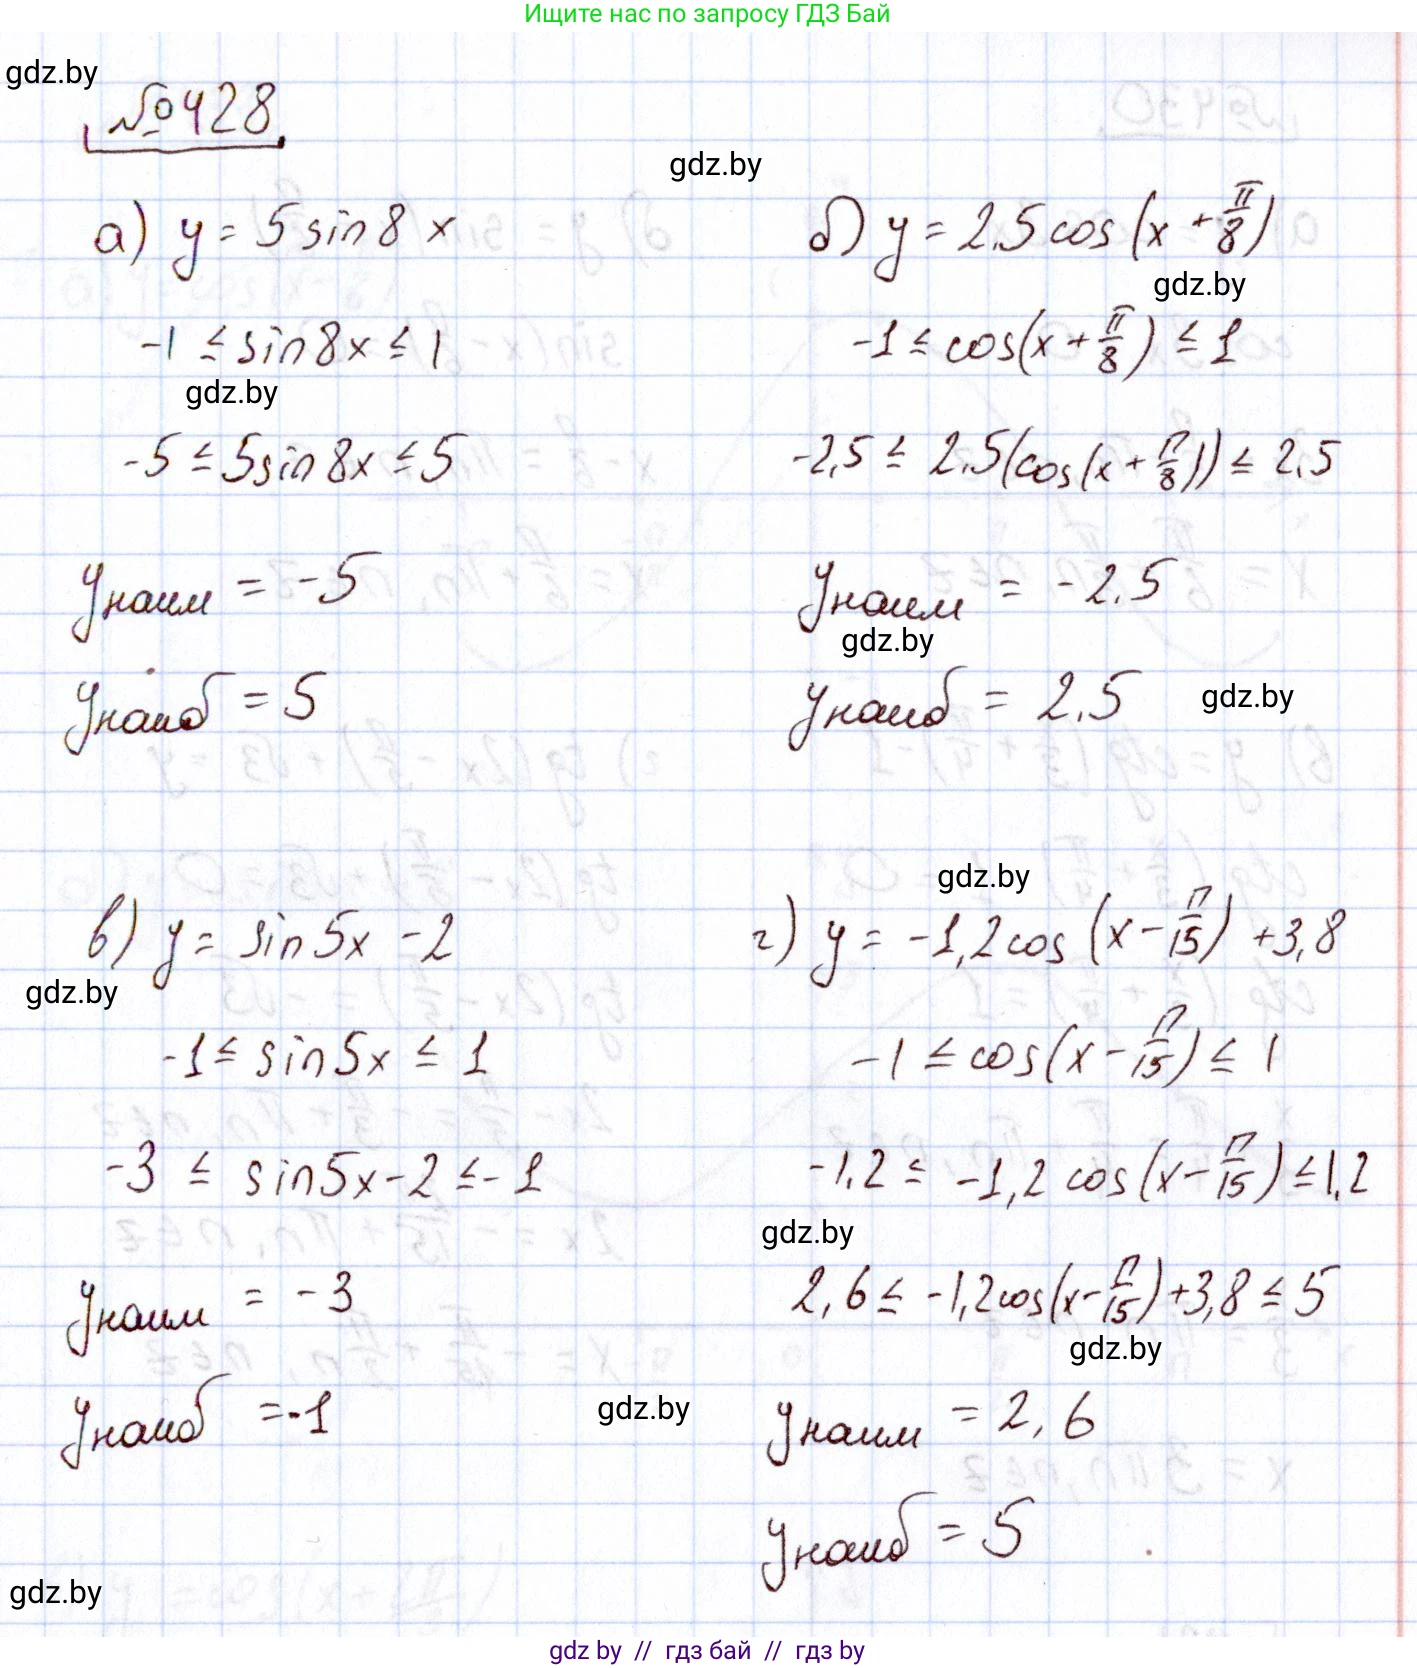 Ищите нас по запросу ГДЗ Бай
gdz.by
№428
gdz.by
а) y = 5 sin 8x
-1 ≤ sin 8x ≤ 1
gdz.by
-5 ≤ 5 sin 8x ≤ 5
yнаим = -5
yнаиб = 5
б) y = 2,5 cos (x + π/8)
gdz.by
-1 ≤ cos(x + π/8) ≤ 1
-2,5 ≤ 2,5(cos(x + π/8)) ≤ 2,5
yнаим = -2,5
gdz.by
yнаиб = 2,5
gdz.by
в) y = sin 5x - 2
gdz.by
-1 ≤ sin 5x ≤ 1
-3 ≤ sin 5x - 2 ≤ -1
yнаим = -3
yнаиб = -1
gdz.by
gdz.by
г) y = -1,2 cos (x - π/15) + 3,8
-1 ≤ cos(x - π/15) ≤ 1
-1,2 ≤ -1,2 cos(x - π/15) ≤ 1,2
gdz.by
2,6 ≤ -1,2 cos(x - π/15) + 3,8 ≤ 5
gdz.by
yнаим = 2,6
yнаиб = 5
gdz.by
gdz by // гдз бай // гдз by